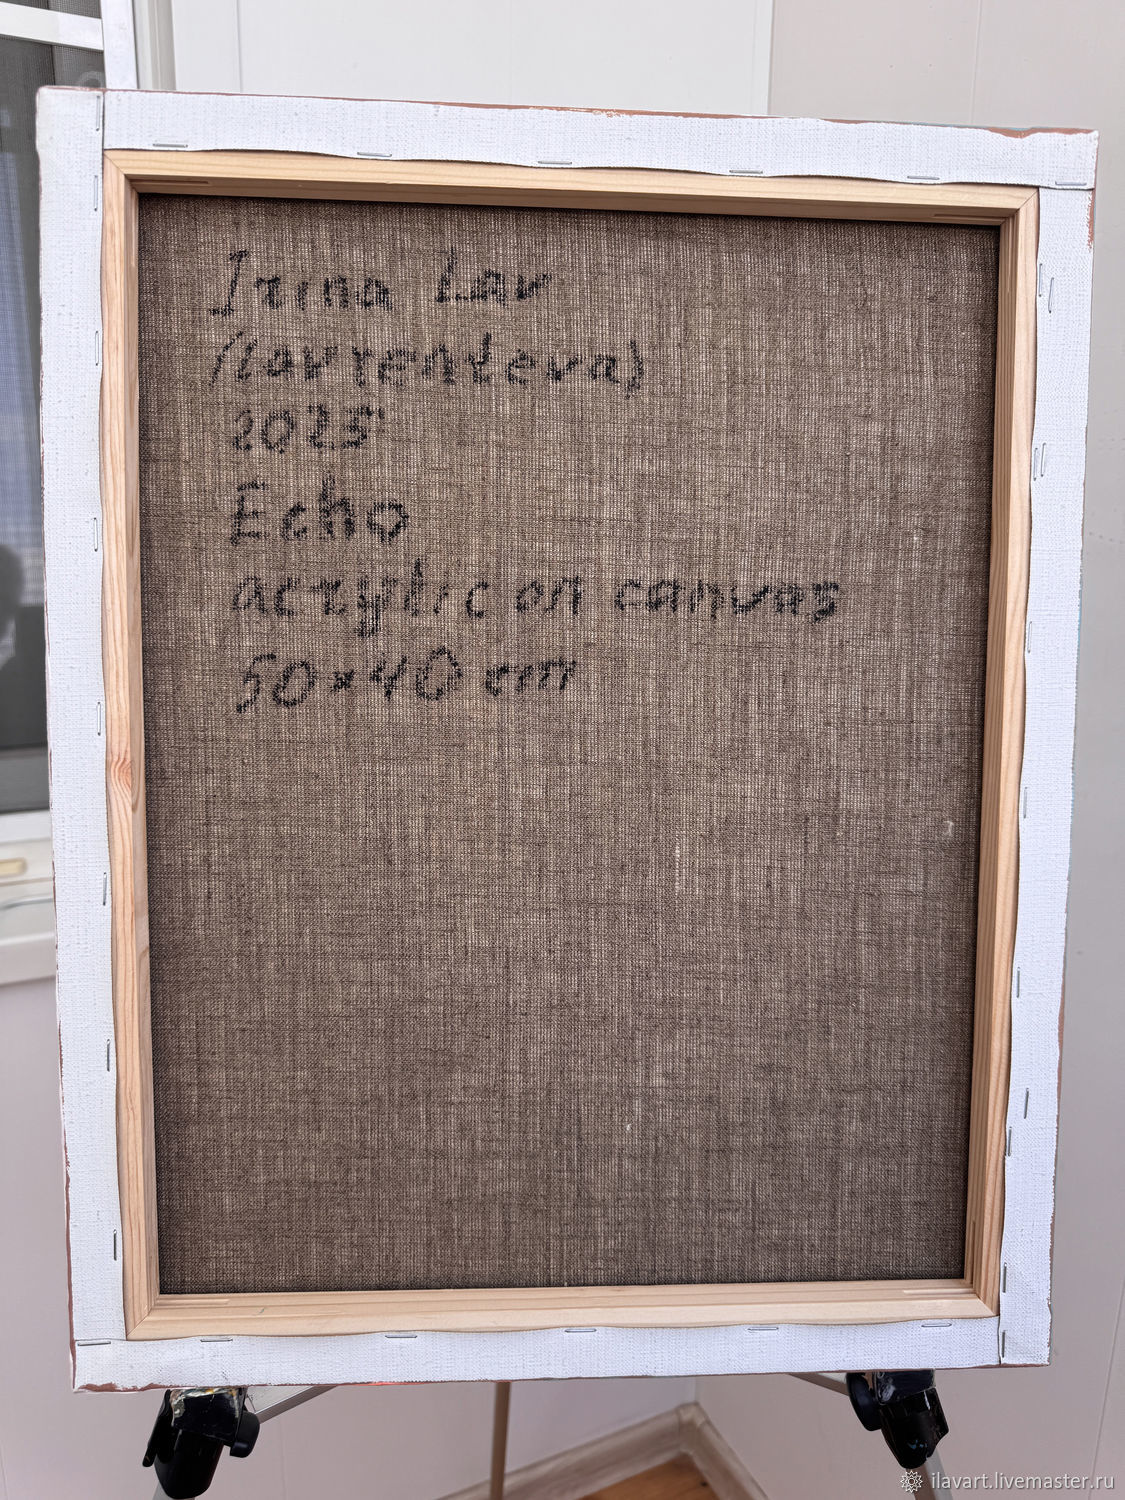 Irina Lav
(Lavrenteva)
2025
Echo
acrylic on canvas
50×40 cm
ilavart.livemaster.ru